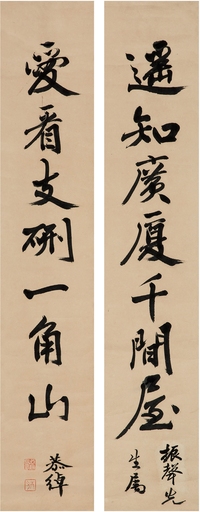 遥知廣厦千間屋
振聲先
生屬
愛看支硎一角山
恭綽